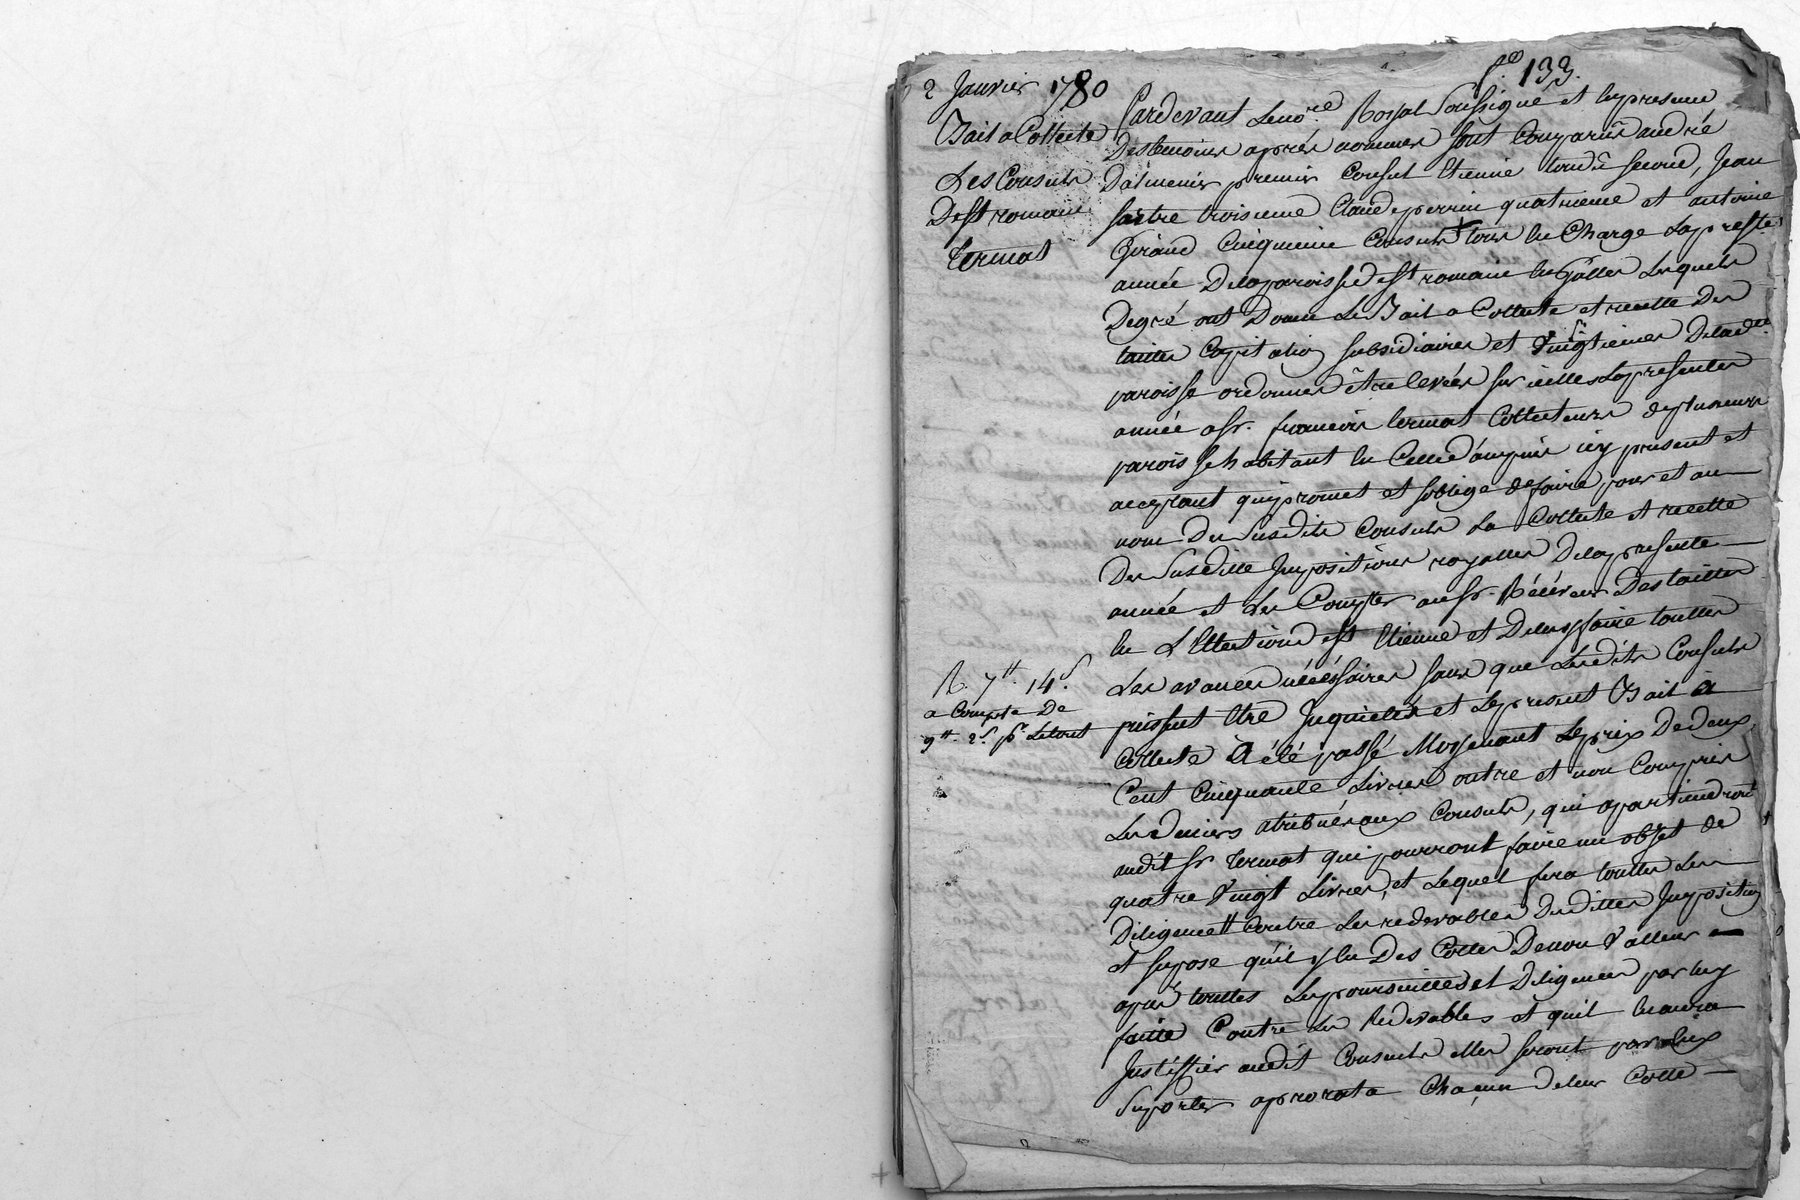 fo 133.
2 Janvier 1780
Bail a Collecte
Les Consuls
De St romain
Termat
Pardevant Le no.re Royal Soussigné et en presence
Des temoins après nommés sont Comparus andré
premier Consul Etienne second, Jean
troisieme Claude perrin quatrieme et antoine
Giraud Cinquieme Consuls tous en Charge La preste
année De la paroisse de St romain les Lesquels
De gré ont Donné Le Bail a Collecte et recette Des
tailles Capitation subsidiaires et vingtiemes De lad.te
paroisse ordonnés être levées sur icelle La presente
année a Sr. françois termat Collecteur de plusieurs
paroisse habitant en icy present et
acceptant qui promet et s'oblige de faire pour et au
nom Des Susdits Consuls La Collecte et recette
Des Susditte Impositions royalles De la presente
année et Les Compter au Sr. Récéveur Des tailles
en L'Ellection de St Etienne et De leurs faire touttes
Les avances nécéssaires sans que Lesdits Consuls
puissent Etre Inquietés et Le present Bail a
Collecte a été passé Moyenant Le prix De deux
Cent Cinquante Livres outre et non Compris
Les deniers atribués aux Consuls, qui apartiendront
audit Sr termat qui pourront faire un objet de
quatre vingt Livres, et Lequel fera touttes Les
Diligences contre Les redevables Desdittes Imposition
et supose qu'il y eu Des Cottes De non valleur
après touttes Les poursuittes et Diligences par luy
faitte Contre Les Redevables et qu'il en aura
Justiffier audit Consuls elles seront par Eux
Suporter aprorata Chaçun de leur Cotte
R. 7tt. 14.s
a Compte De
9tt. 2.s pr. Le tout